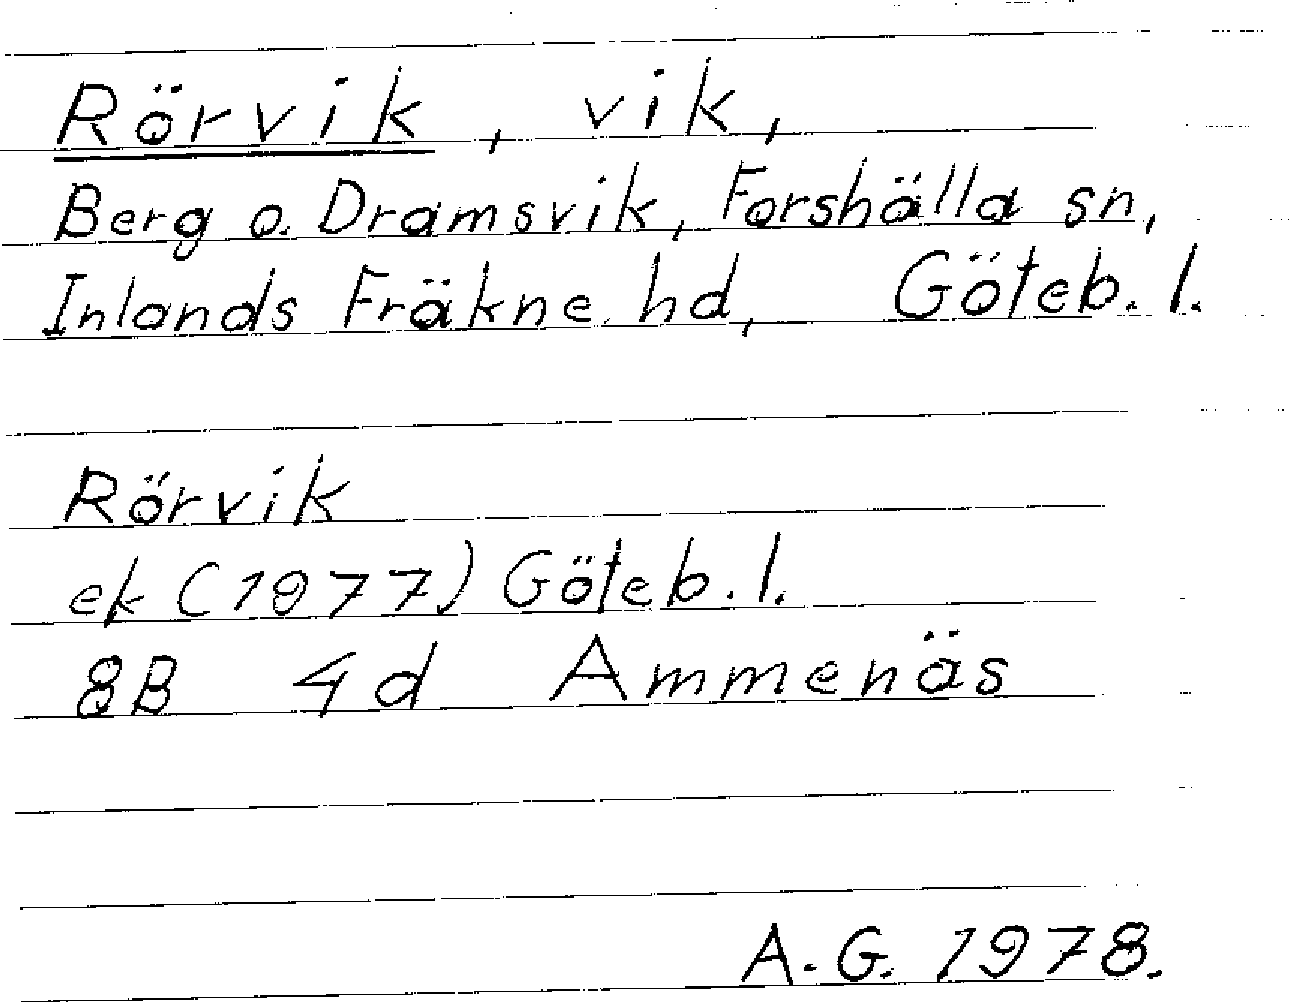 Rörvik, vik,
Berg o. Dramsvik, Forshälla sn,
Inlands Fräkne hd, Göteb. l.
Rörvik
ek (1977) Göteb. l.
8B 4d Ammenäs
A. G. 1978.